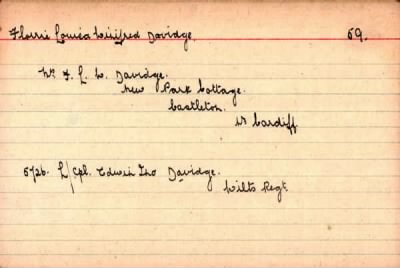 Florrie Louisa Winifred Davidge. 59.
Mrs F. L. W. Davidge.
New Park Cottage.
Castleton.
Nr Cardiff
5726. L/Cpl. Edwin Tho Davidge.
Wilts Regt